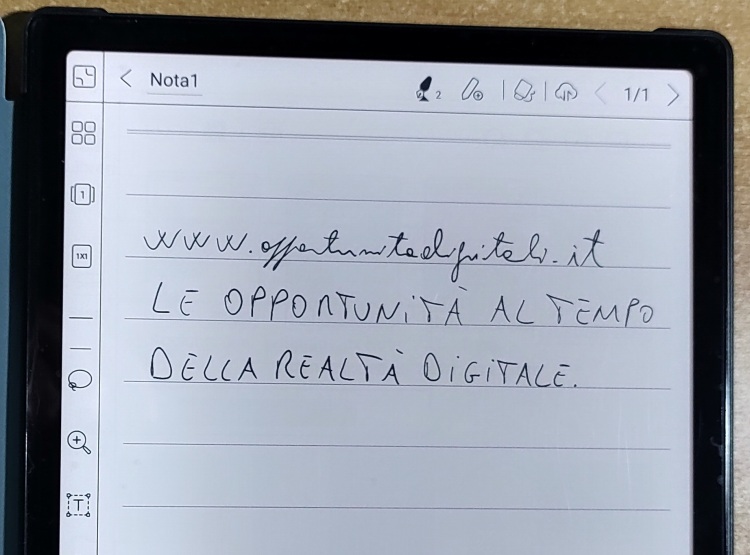 Nota1
2
1/1
1
1X1
www.opportunitadigitali.it
LE OPPORTUNITÀ AL TEMPO
DELLA REALTÀ DIGITALE.
T